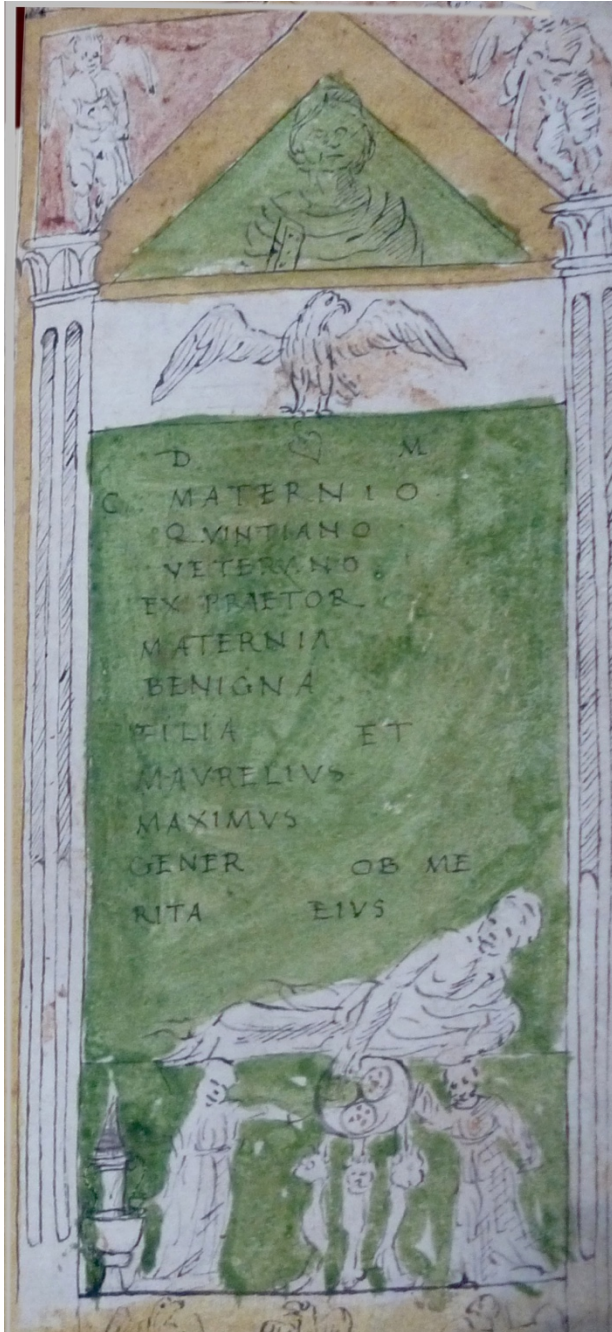 D M
C MATERNIO
QVINTIANO
VETERANO
EX PRAETOR
MATERNIA
BENIGNA
FILIA ET
MAVRELIVS
MAXIMVS
GENER OB ME
RITA EIVS